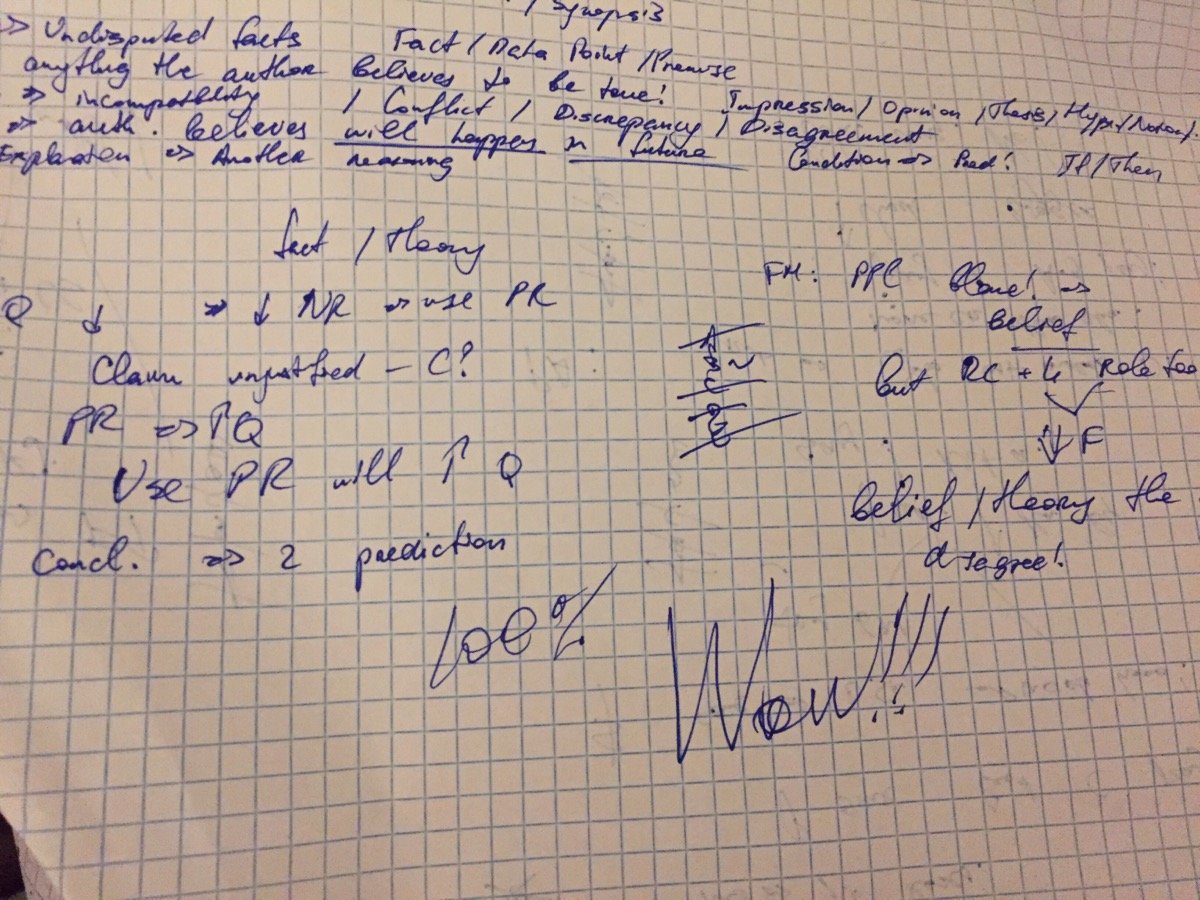 / Synopsis
=> Undisputed facts Fact / Data Point / Premise
anything the author believes to be true! Impression / Opinion / Thesis / Hyp. / Notion /
=> incompatibility / Conflict / Discrepancy / Disagreement
=> auth. believes will happen in future Condition => Pred! If / Then
Explanation => Another reasoning
fact / theory
Q ↓ ↓ NR => use PR
Claim unjustified - C?
PR => ↑Q
Use PR will ↑ Q
Concl. => 2 prediction
100%
Wow!!!!
FM: PPL =>
belief
but RC + Role too
⇓ F
belief / theory the
disagree!